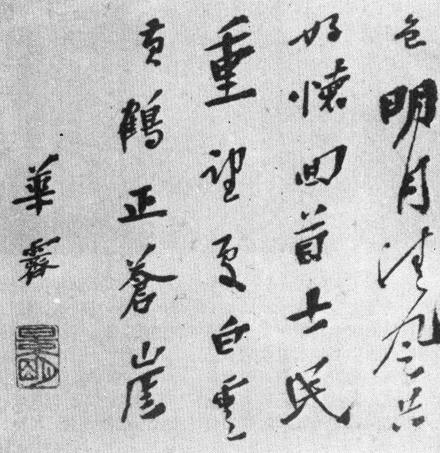 色明月清風共
好懷回首士民
重望白雲
黄鶴正蒼崖
華